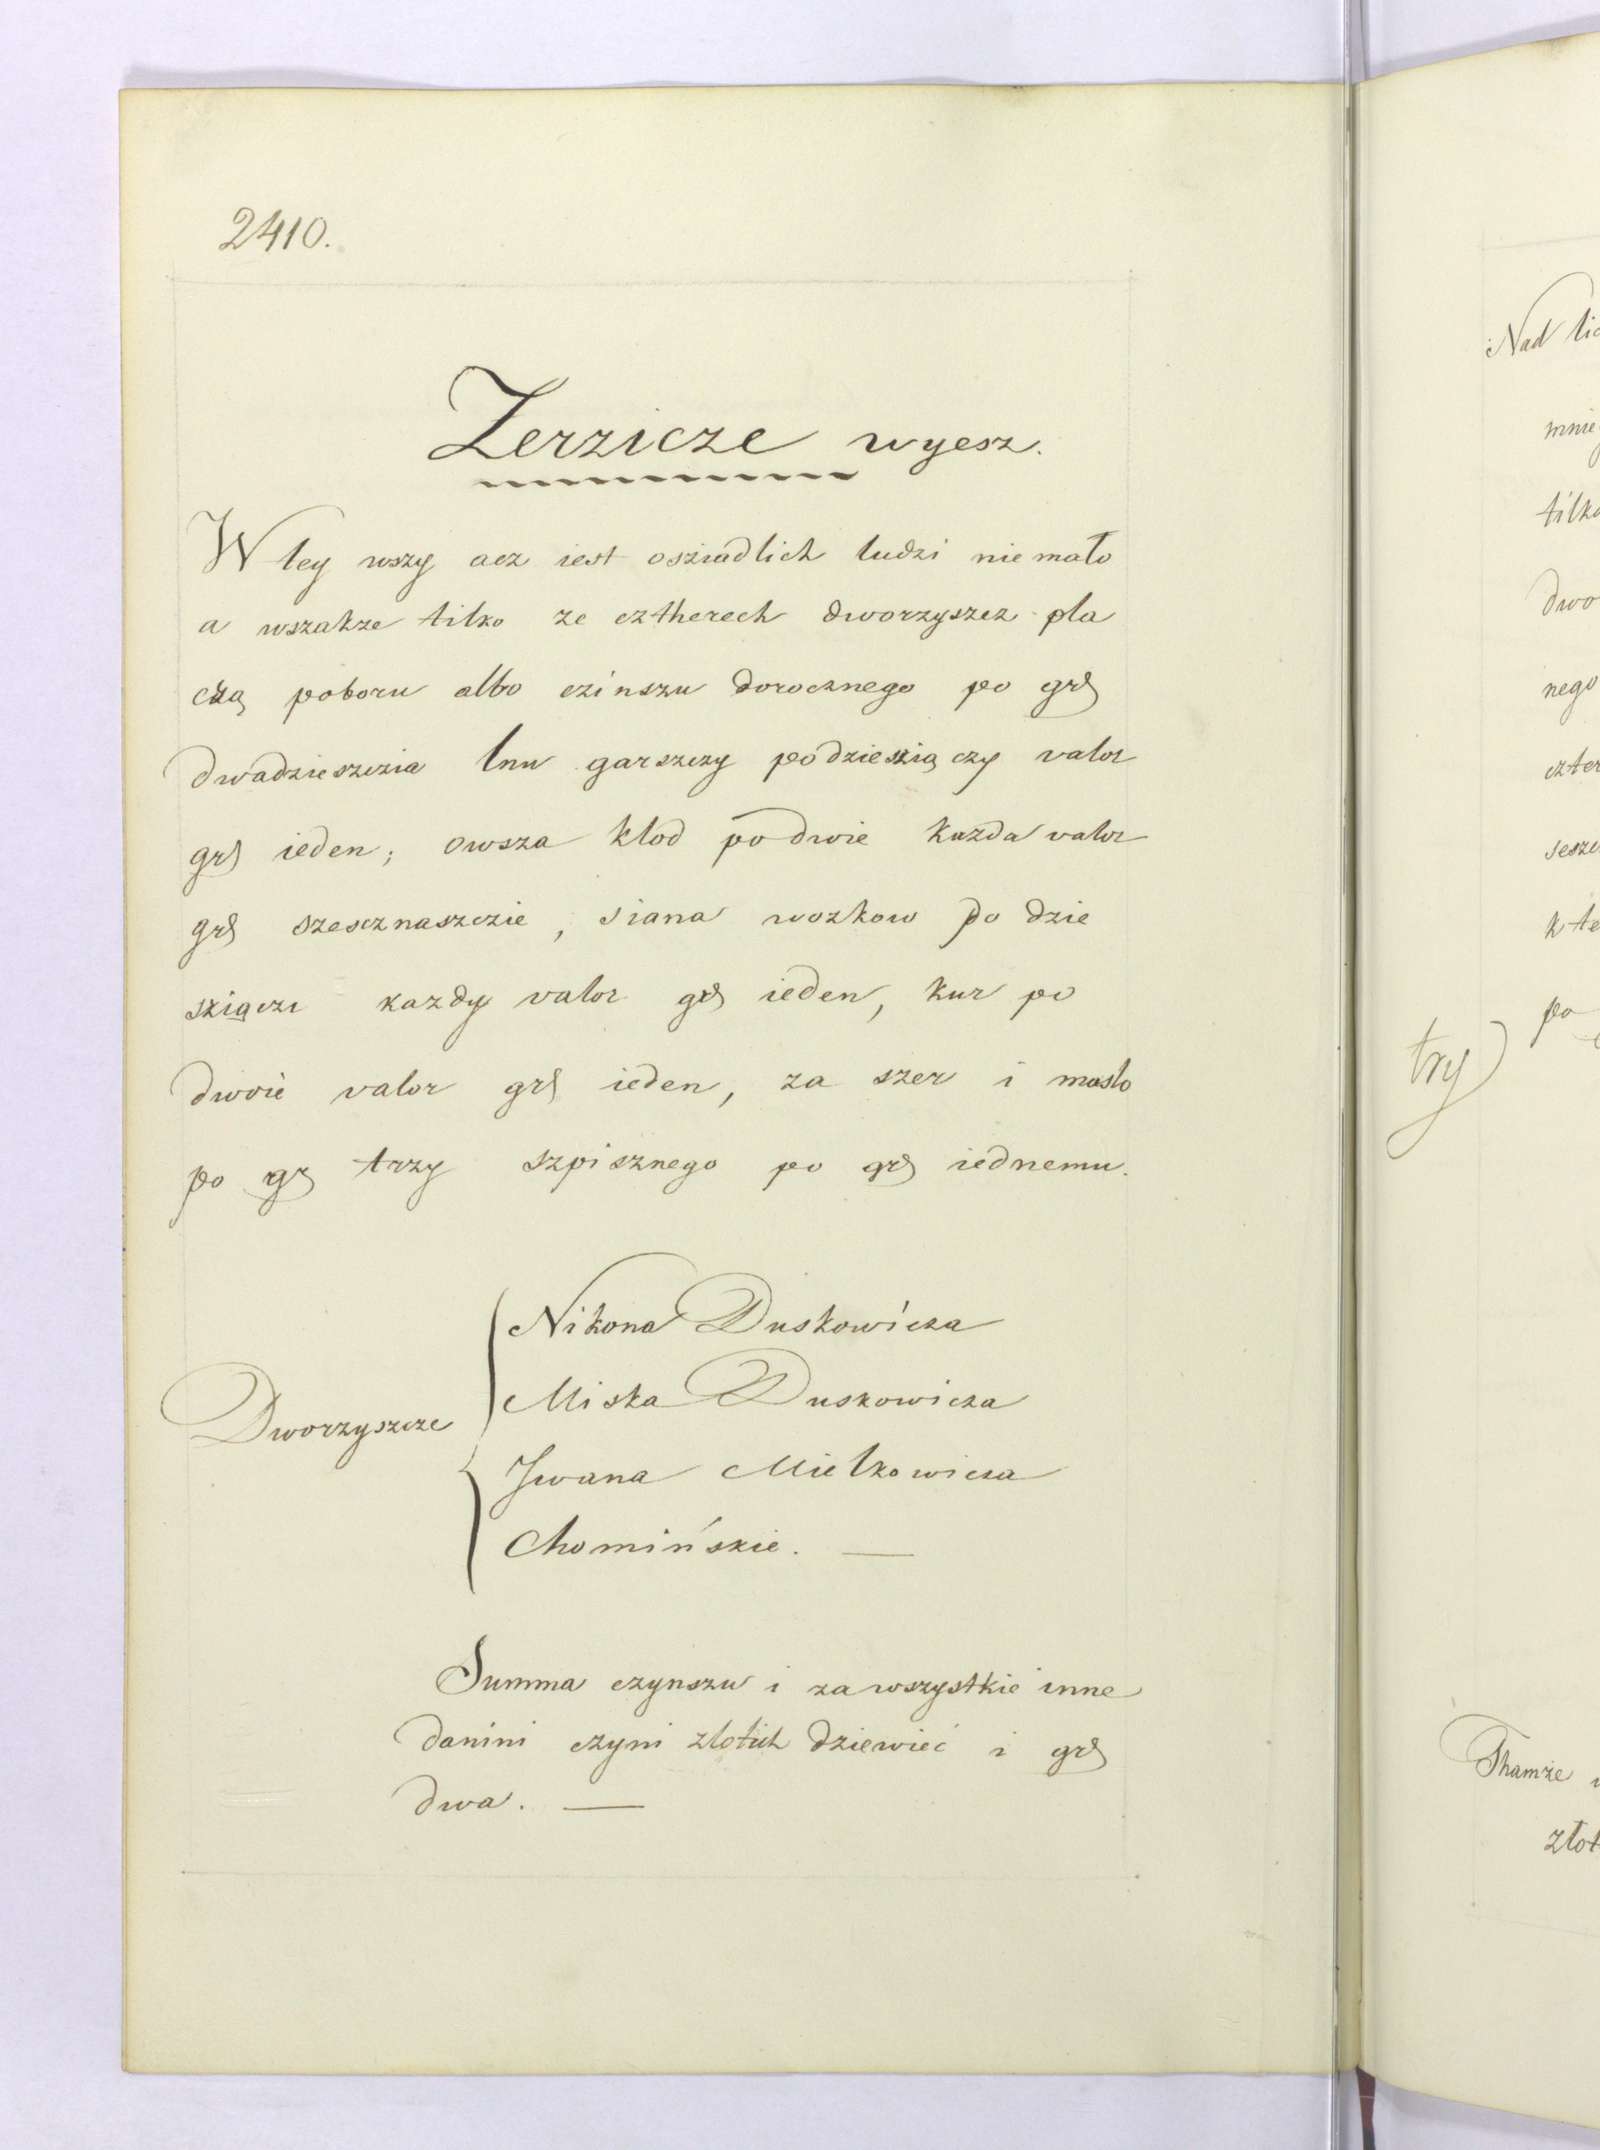 2410.
Zerzicze wyesz.
W tey wszy acz iest osziadlich ludzi nie mało
a wszakze tilko ze cztherech dworzyszcz pla
czą poboru albo czinszu dorocznego po grs
dwadzieszczia lnu garszczy po dziesziączy valor
grs ieden; owsza klod po dwie kazda valor
grs szescznaszczie, siana wozkow po dzie
sziączi kazdy valor grs ieden, kur po
dwoie valor grs ieden, za szer i maslo
po gr trzy szpisznego po grs iednemu.
Dworzyszcze
Nikona Duskowicza
Miska Duskowicza
Jwana Mielkowicza
Chomińskie. —
Summa czynszu i za wszystkie inne
danini czyni zlotich dziewieć i grs
dwa. —
Nad
tilko
nego
try
po
Thamze